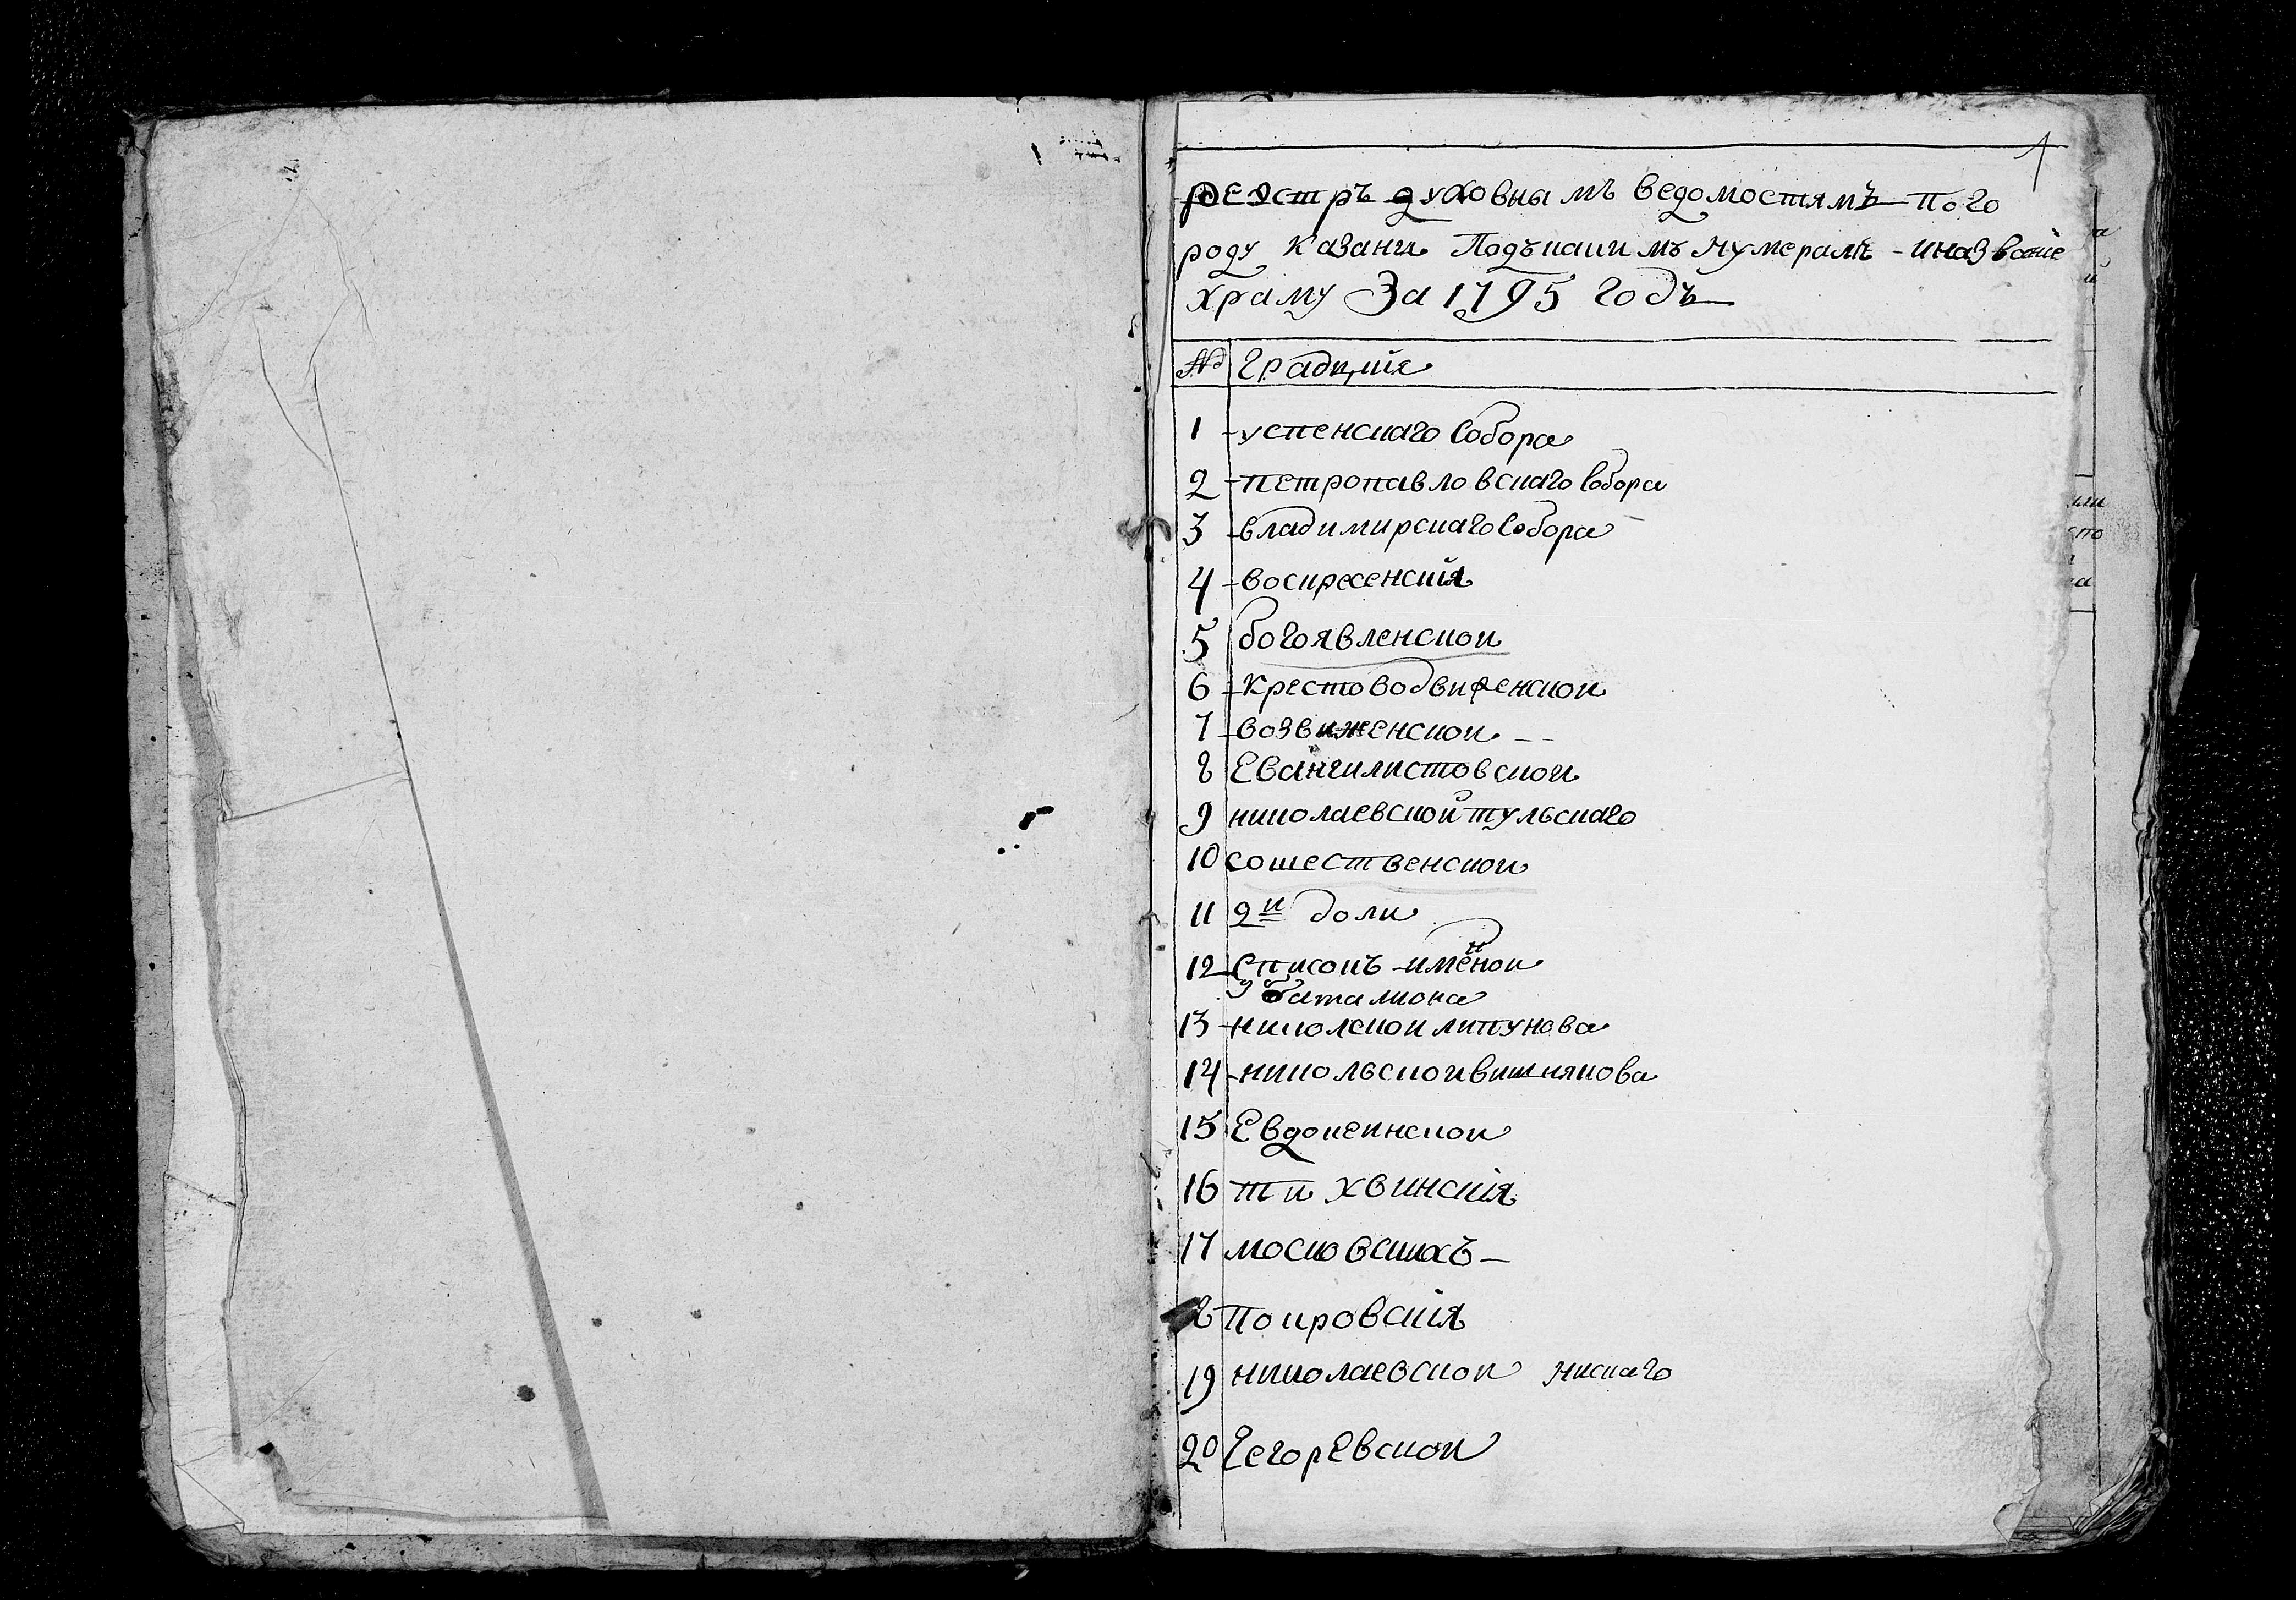 1
реэстръ духовнымъ ведомостямъ пого
роду Казани Подъкаким нумерамъ - иназвание
храму За 1795 годъ
№ градцкие
1 успенскаго Собора
2 петропавловскаго Собора
3 владимирскаго Собора
4 воскресенския
5 богоявленскои
6 Крестовоздвиженскои
7 возвиженскои
8 Евангилистовскои
9 николаевской тульскаго
10 сошественскои
11 2й доли
12 Список имѣнои
9 баталиона
13 николскои липунова
14 никольскои вишнякова
15 Евдокеинскои
16 тихвинскія
17 московскихъ
покровскія
19 николаевскои нискаго
20 Гегоревскои